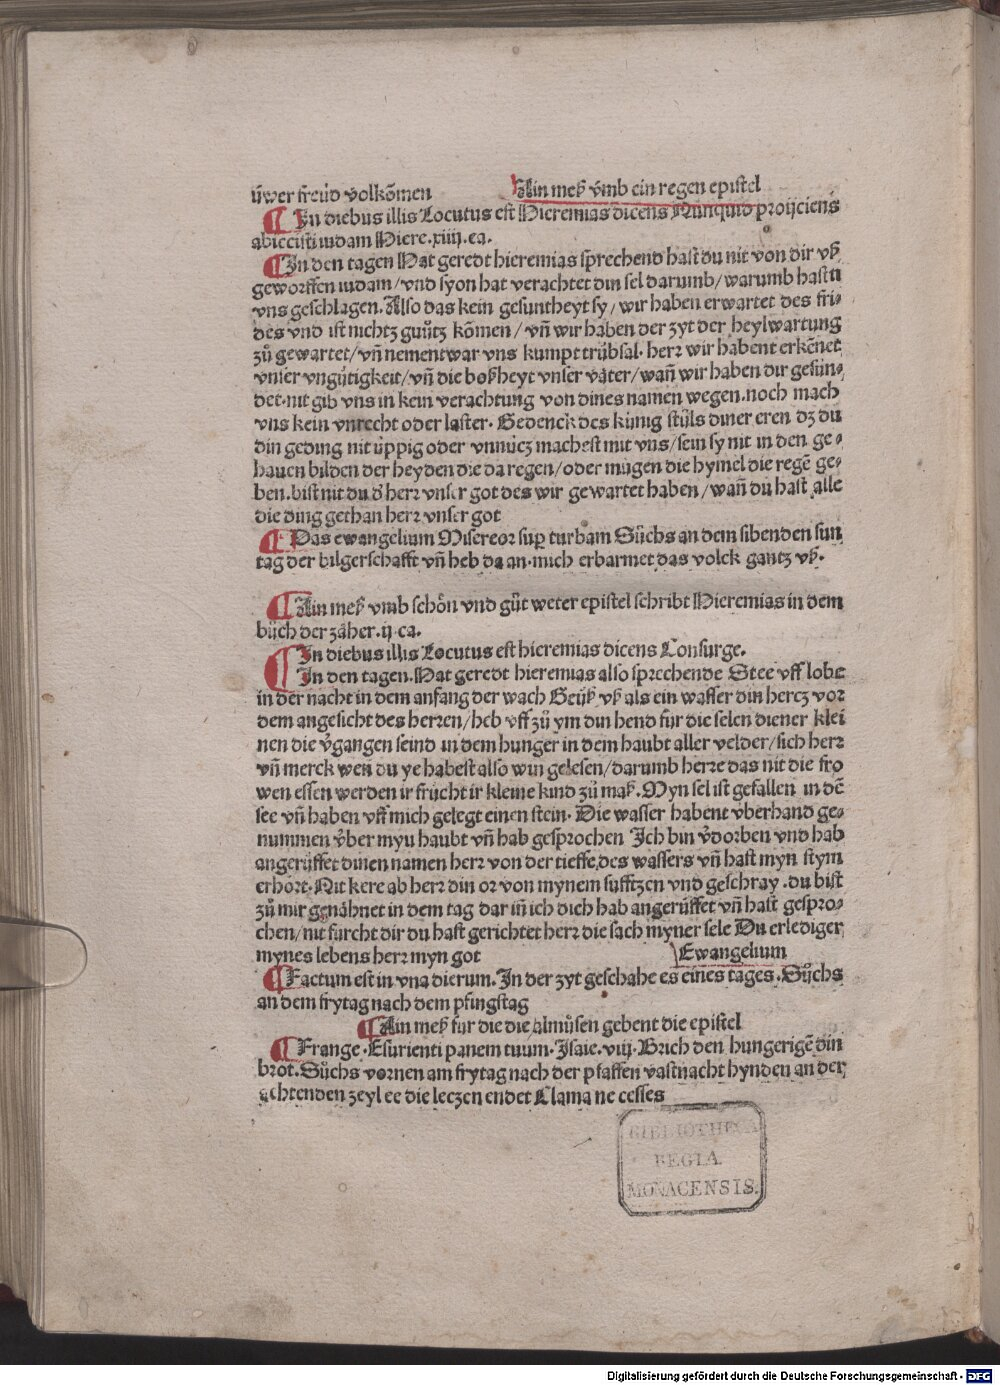 ǔwer freǔd volkōmen Ain meß vmb ein regen epistel
¶ In diebus illis Locutus est Hieremias dicens Nunquid proijciens
abiecisti iudam Hiere.xiiij.ca.
¶ In den tagen Hat geredt hieremias sprechend hast du nit von dir vß
geworffen iudam/vnd syon hat verachtet din sel darumb/warumb hastu
vns geschlagen.Also das kein gesuntheyt sy/wir haben erwartet des fri⸗
des vnd ist nichtz guůtz kōmen/vn̄ wir haben der zyt der heylwartung
zů gewartet/vn̄ nement war vns kumpt trübsal.herr wir habent erkēnet
vnser vngütigkeit/vn̄ die boßheyt vnser väter/wan̄ wir haben dir gesün⸗
det.nit gib vns in kein verachtung von dines namen wegen.noch mach
vns kein vnrecht oder laster.Bedenck des künig stůls diner eren dz du
din geding nit üppig oder vnnücz machest mit vns/sein sy nit in den ge⸗
hauen bilden der heyden die da regen/oder mügen die hymel die regē ge⸗
ben.bist nit du d' herr vnser got des wir gewartet haben/wan̄ du hast alle
die ding gethan herr vnser got
¶ Das ewangelium Misereor sup turbam Sůchs an dem sibenden sun
tag der bilgerschafft vn̄ heb da an.mich erbarmet das volck gantz vß.
¶ Ain meß vmb schön vnd gůt weter epistel schribt Hieremias in dem
bůch der zäher.ij.ca.
¶ In diebus illis Locutus est hieremias dicens Consurge.
In den tagen.Hat geredt hieremias also sprechende Stee vff lobe
in der nacht in dem anfang der wach Geüß vß als ein wasser din hercz vor
dem angesicht des herren/heb vff zů ym din hend für die selen diener klei
nen die v̓gangen seind in dem hunger in dem haubt aller velder/sich herr
vn̄ merck wen du ye habest also win gelesen/darumb herre das nit die fro
wen essen werden ir frücht ir kleine kind zů maß.Myn sel ist gefallen in dē
see vn̄ haben vff mich gelegt einen stein.Die wasser habent v̓berhand ge⸗
nummen v̓ber myu haubt vn̄ hab gesprochen Ich bin v̓dorben vnd hab
angerüffet dinen namen herr von der tieffe des wassers vn̄ hast myn stym
erhört.Nit kere ab herr din or von mynem sufftzen vnd geschray.du bist
zů mir genähnet in dem tag dar in̄ ich dich hab angerüffet vn̄ hast gespro⸗
chen/nit fürcht dir du hast gerichtet herr die sach myner sele Du erlediger
mynes lebens herr myn got Ewangelium
¶ Factum est in vna dierum.In der zyt geschahe es eines tages.Sůchs
an dem frytag nach dem pfingstag
¶ Ain meß für die die almůsen gebent die epistel
¶ Frange.Esurienti panem tuum.Isaie.viij.Brich den hungerigē din
brot.Sůchs vornen am frytag nach der pfaffen vastnacht hynden an der
achtenden zeyl ee die leczen endet Clama ne cesses
BIBLIOTHECA
REGIA
MONACENSIS.
Digitalisierung gefördert durch die Deutsche Forschungsgemeinschaft - DFG